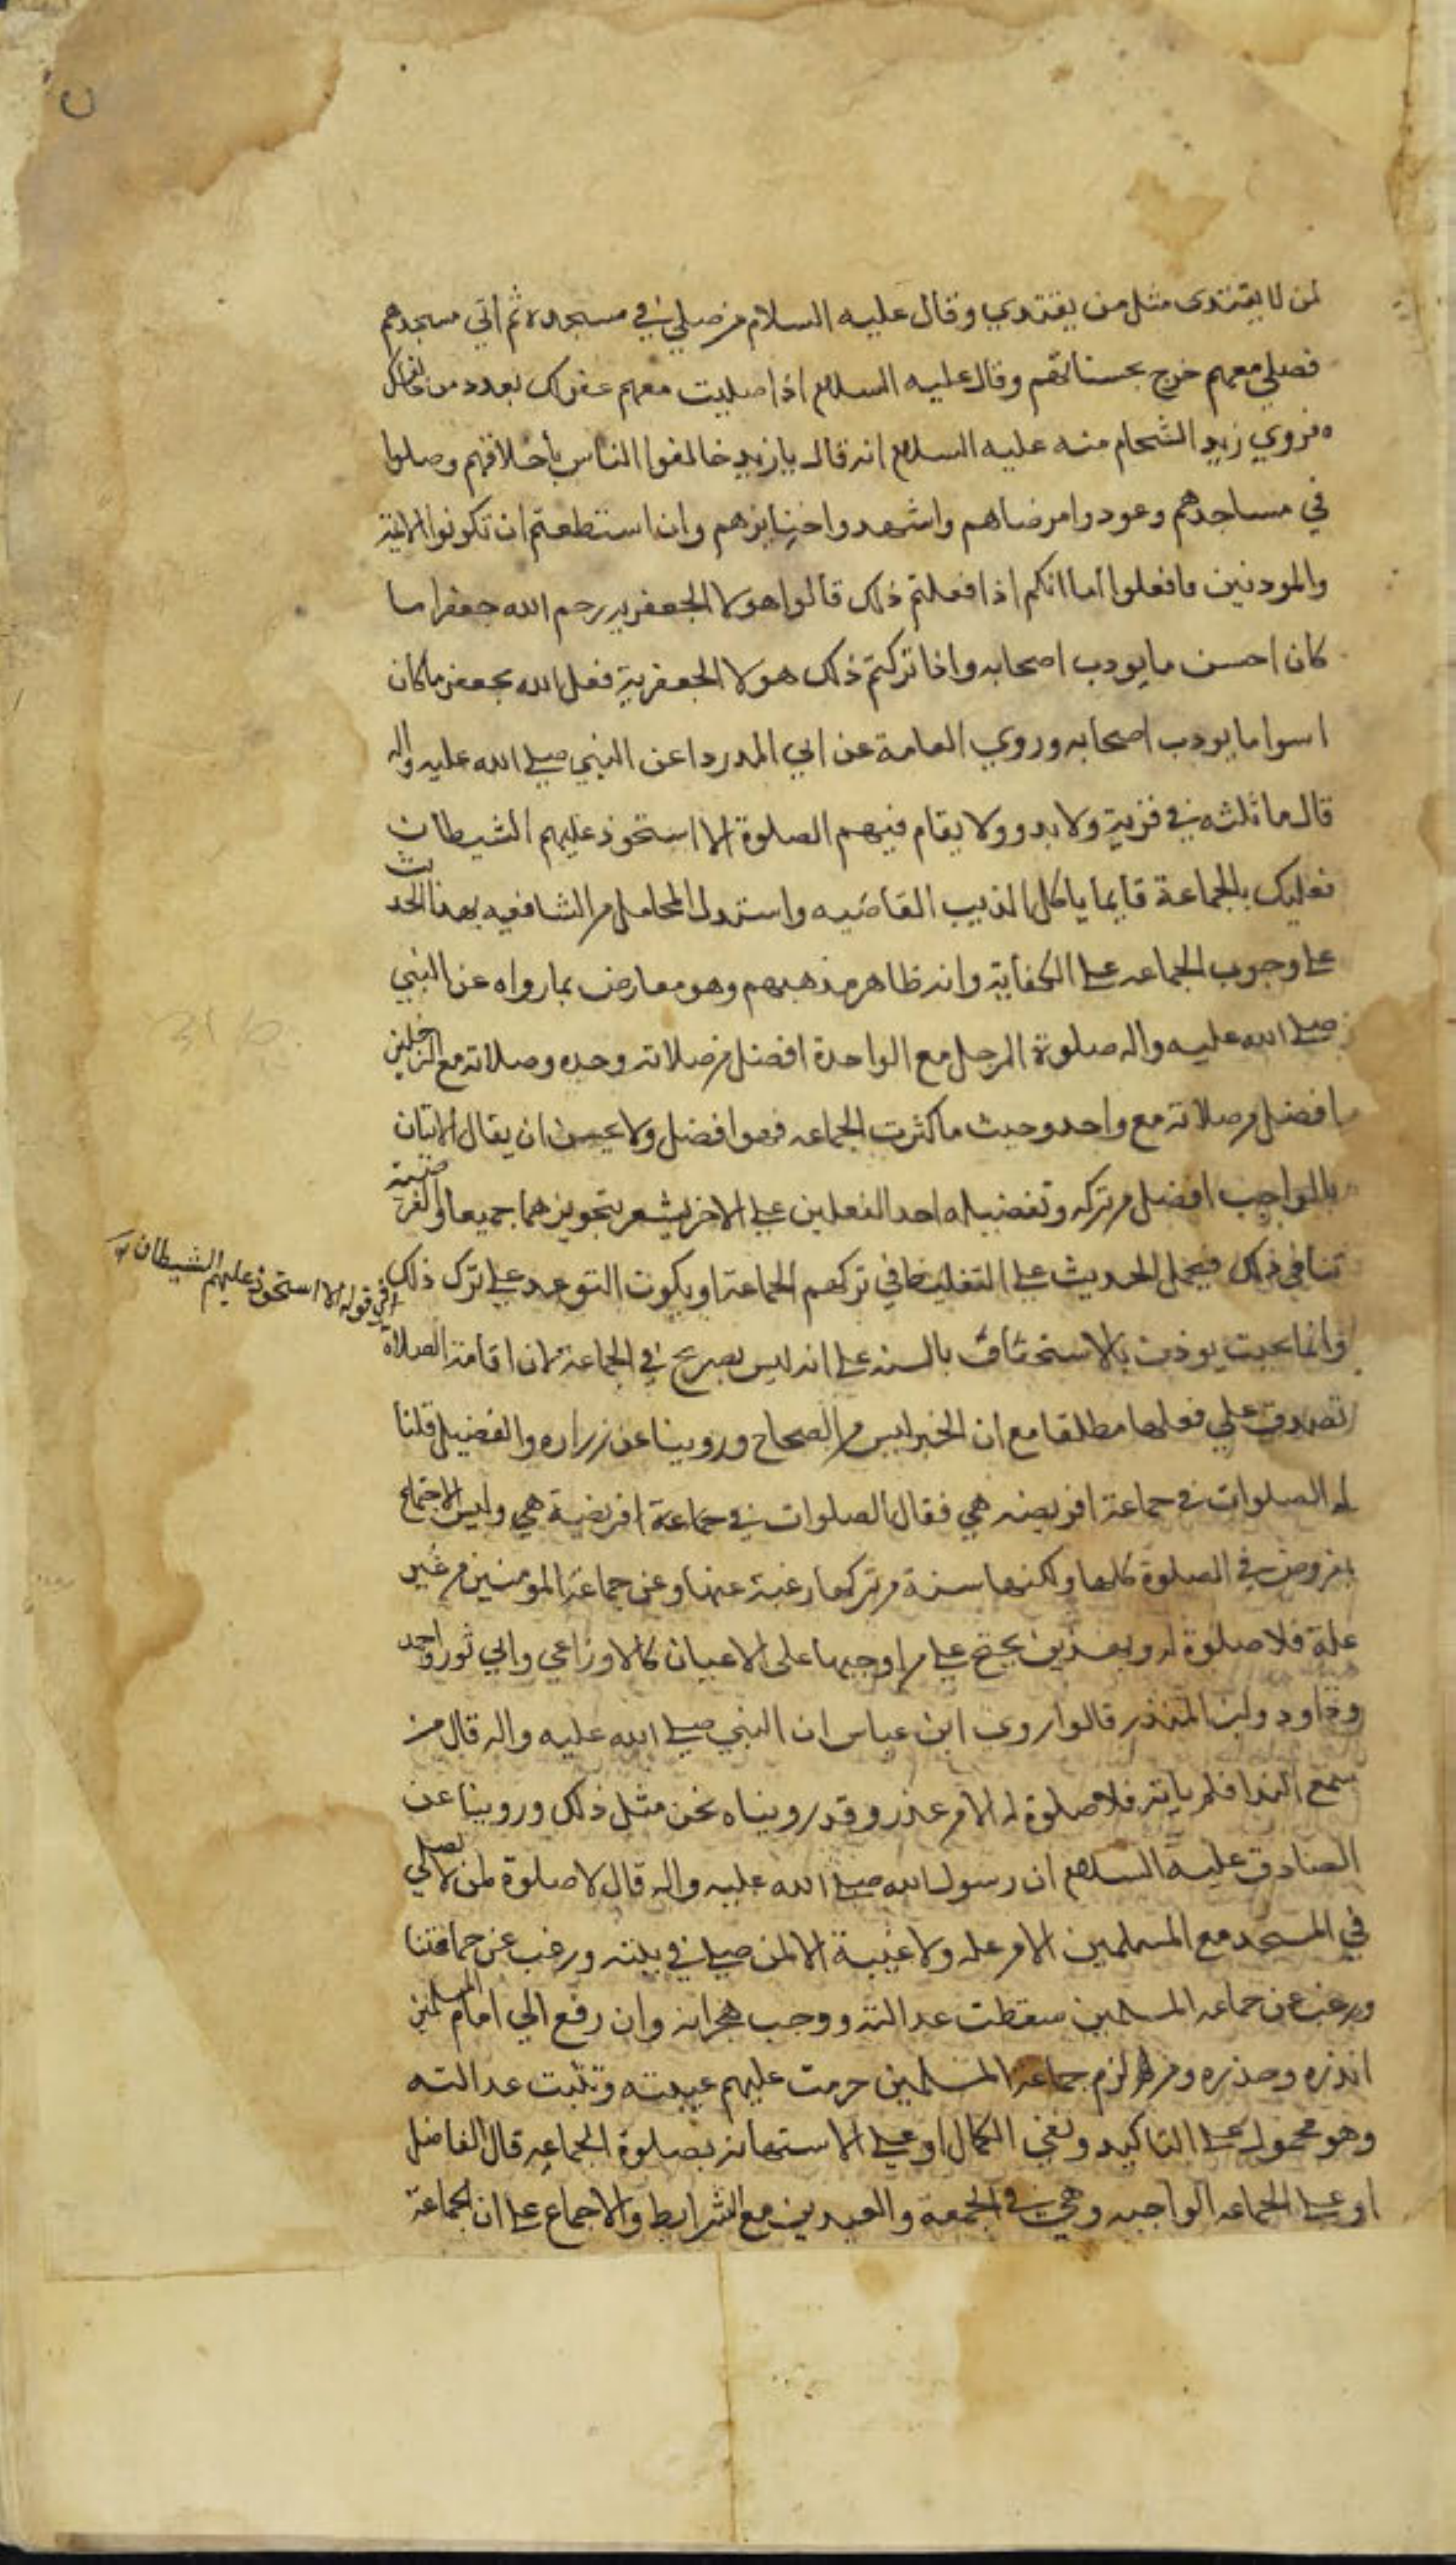 لمن لا يقتدى مثل من يقتدي وقال عليه السلام من صلى في مسجده ثم اتي مسجدهم
فصلي معهم خرج بحسناتهم وقال عليه السلام اذا صليت معهم غفر لك بعدد من خالفك
وروي زيد الشحام عنه عليه السلام انه قال يا زيد خالقوا الناس بأخلاقهم وصلوا
في مساجدهم وعودوا مرضاهم واشهدوا جنايزهم وان استطعتم ان تكونوا الائمة
والموذنين فافعلوا اما انكم اذا فعلتم ذلك قالوا هولا الجعفريه رحم الله جعفرا ما
كان احسن ما يودب اصحابه واذا تركتم ذلك هولا الجعفرية فعل الله بجعفر ما كان
اسوا ما يودب اصحابه وروي العامة عن ابي الدردا عن النبي صلى الله عليه واله
قال ما ثلثه في قرية ولا بدو ولا يقام فيهم الصلوة الا استحوذ عليهم الشيطان
فعليك بالجماعة فايما ياكل الذيب القاصيه واستدل المحاملي من الشافعيه بهذا الحديث
على وجوب الجماعه على الكفاية وانه ظاهر مذهبهم وهو معارض بما رواه عن النبي
صلى الله عليه واله صلوة الرجل مع الواحدة افضل من صلاته وحده وصلاته مع الرجلين
افضل من صلاته مع واحد وحيث ما كثرت الجماعه فهو افضل ولا يحسن ان يقال الاتيان
بالواجب افضل من تركه وتفضيله احد الفعلين على الاخر يشعر بتجويزهما جميعا والفرضية
تنافي ذلك فيحمل الحديث على التغليظ في تركهم الجماعة او يكون التوعد على ترك ذلك
في قوله الا استحوذ عليهم الشيطان
وانما بحيث يوذن بالاستخفاف بالسنه على انه ليس بصريح في الجماعة لان اقامة الصلاة
تصدق على فعلها مطلقا مع ان الخبر ليس من الصحاح وروينا عن زراره والفضيل قلنا
له الصلوات في جماعة افريضه هي فقال الصلوات في جماعة افريضة هي وليس الاجتماع
بمفروض في الصلوة كلها ولكنها سنة من تركها رغبة عنها وعن جماعة المومنين من غير
علة فلا صلوة له وبهذين يحتج على من اوجبها على الاعيان كالاوزاعي وابي ثور واحمد
وداود وابن المنذر قالوا روى ابن عباس ان النبي صلى الله عليه واله قال من
سمع الندا فلم ياته فلا صلوة له الا من عذر وقد روينا نحن مثل ذلك وروينا عن
الصادق عليه السلام ان رسول الله صلى الله عليه واله قال لا صلوة لمن لا يصلي
في المسجد مع المسلمين الا من عله ولا غيبة الا لمن صلى في بيته ورغب عن جماعتنا
ومن رغب عن جماعه المسلمين سقطت عدالته ووجب هجرانه وان رفع الي امام المسلمين
انذره وحذره ومن لزم جماعه المسلمين حرمت عليهم غيبته وثبت عدالته
وهو محمول على التاكيد ونفي الكمال او على الاستهانه بصلوة الجماعه قال الفاضل
او على الجماعه الواجبه وهي في الجمعة والعيدين مع الشرايط والاجماع على ان الجماعة